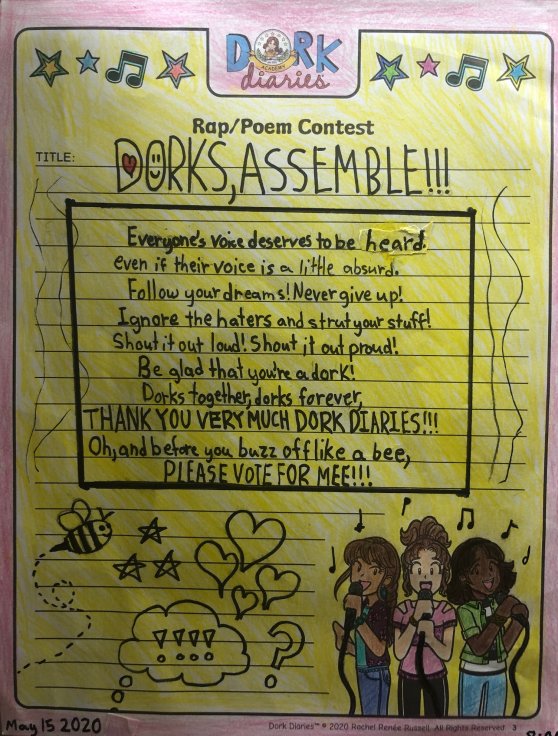 DORK
ACADEMY
diaries
Rap/Poem Contest
TITLE: DORKS, ASSEMBLE!!!
Everyone's voice deserves to be heard.
even if their voice is a little absurd.
Follow your dreams! Never give up!
Ignore the haters and strut your stuff!
Shout it out loud! Shout it out proud!
Be glad that you're a dork!
Dorks together, dorks forever,
THANK YOU VERY MUCH DORK DIARIES!!!
Oh, and before you buzz off like a bee,
PLEASE VOTE FOR MEE!!!
!!!!
?
May 15 2020
Dork Diaries™ © 2020 Rachel Renée Russell. All Rights Reserved. 3